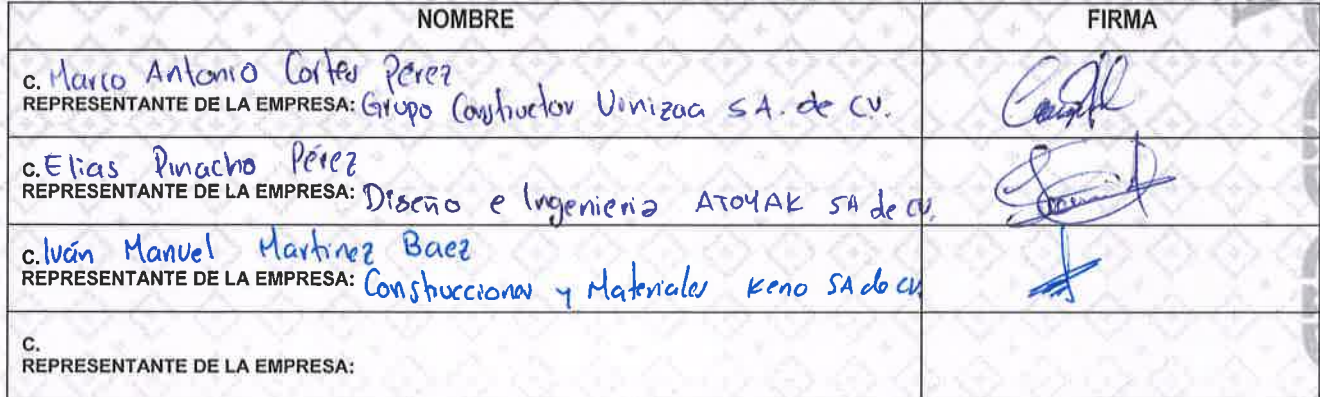 NOMBRE FIRMA
C. Marco Antonio Cortes Pérez
REPRESENTANTE DE LA EMPRESA: Grupo Constructor Uinizaa S A. de CV.
C. Elias Pinacho Pérez
REPRESENTANTE DE LA EMPRESA: Diseño e Ingenieria ATOYAK SA de CV.
C. Iván Manuel Martinez Baez
REPRESENTANTE DE LA EMPRESA: Construcciones y Materiales Keno SA de CV.
C.
REPRESENTANTE DE LA EMPRESA: